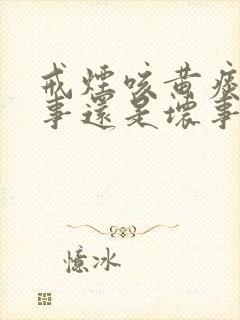 戒煙咳黄痰
事還是壞事
憶冰